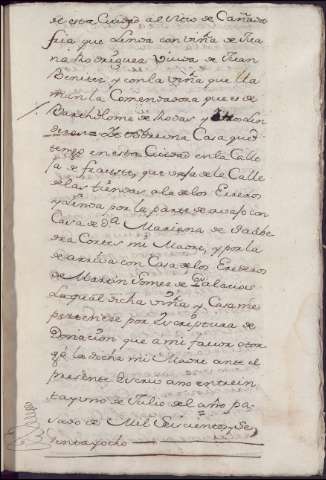 de esta Ciudad al sitio de Cañada
fria que linda con viña de Jua
na Rodriguez Viuda de Juan
Benitez y con la viña que lla
man la Comendadora que es de
Bartholome de Rodas y
de otra una Casa que
tengo en esta Ciudad en la Calle
ja de que vaja de la Calle
de las tiendas a la de los Erreros
y linda por la parte de avajo con
Casa de Dª Mariana de Saabe
dra Cortes mi Madre, y por la
de arriva con Casa de los Erederos
de Martin Gomez de Palacios
La qual dicha viña y Casa me
pertenece por Escriptura de
Donacion que a mi favor otor
gó la dicha mi Madre ante el
presente Escrivano en trein
ta y uno de Julio del año pa
sado de Mil Seiscientos y Se
tenta y ocho